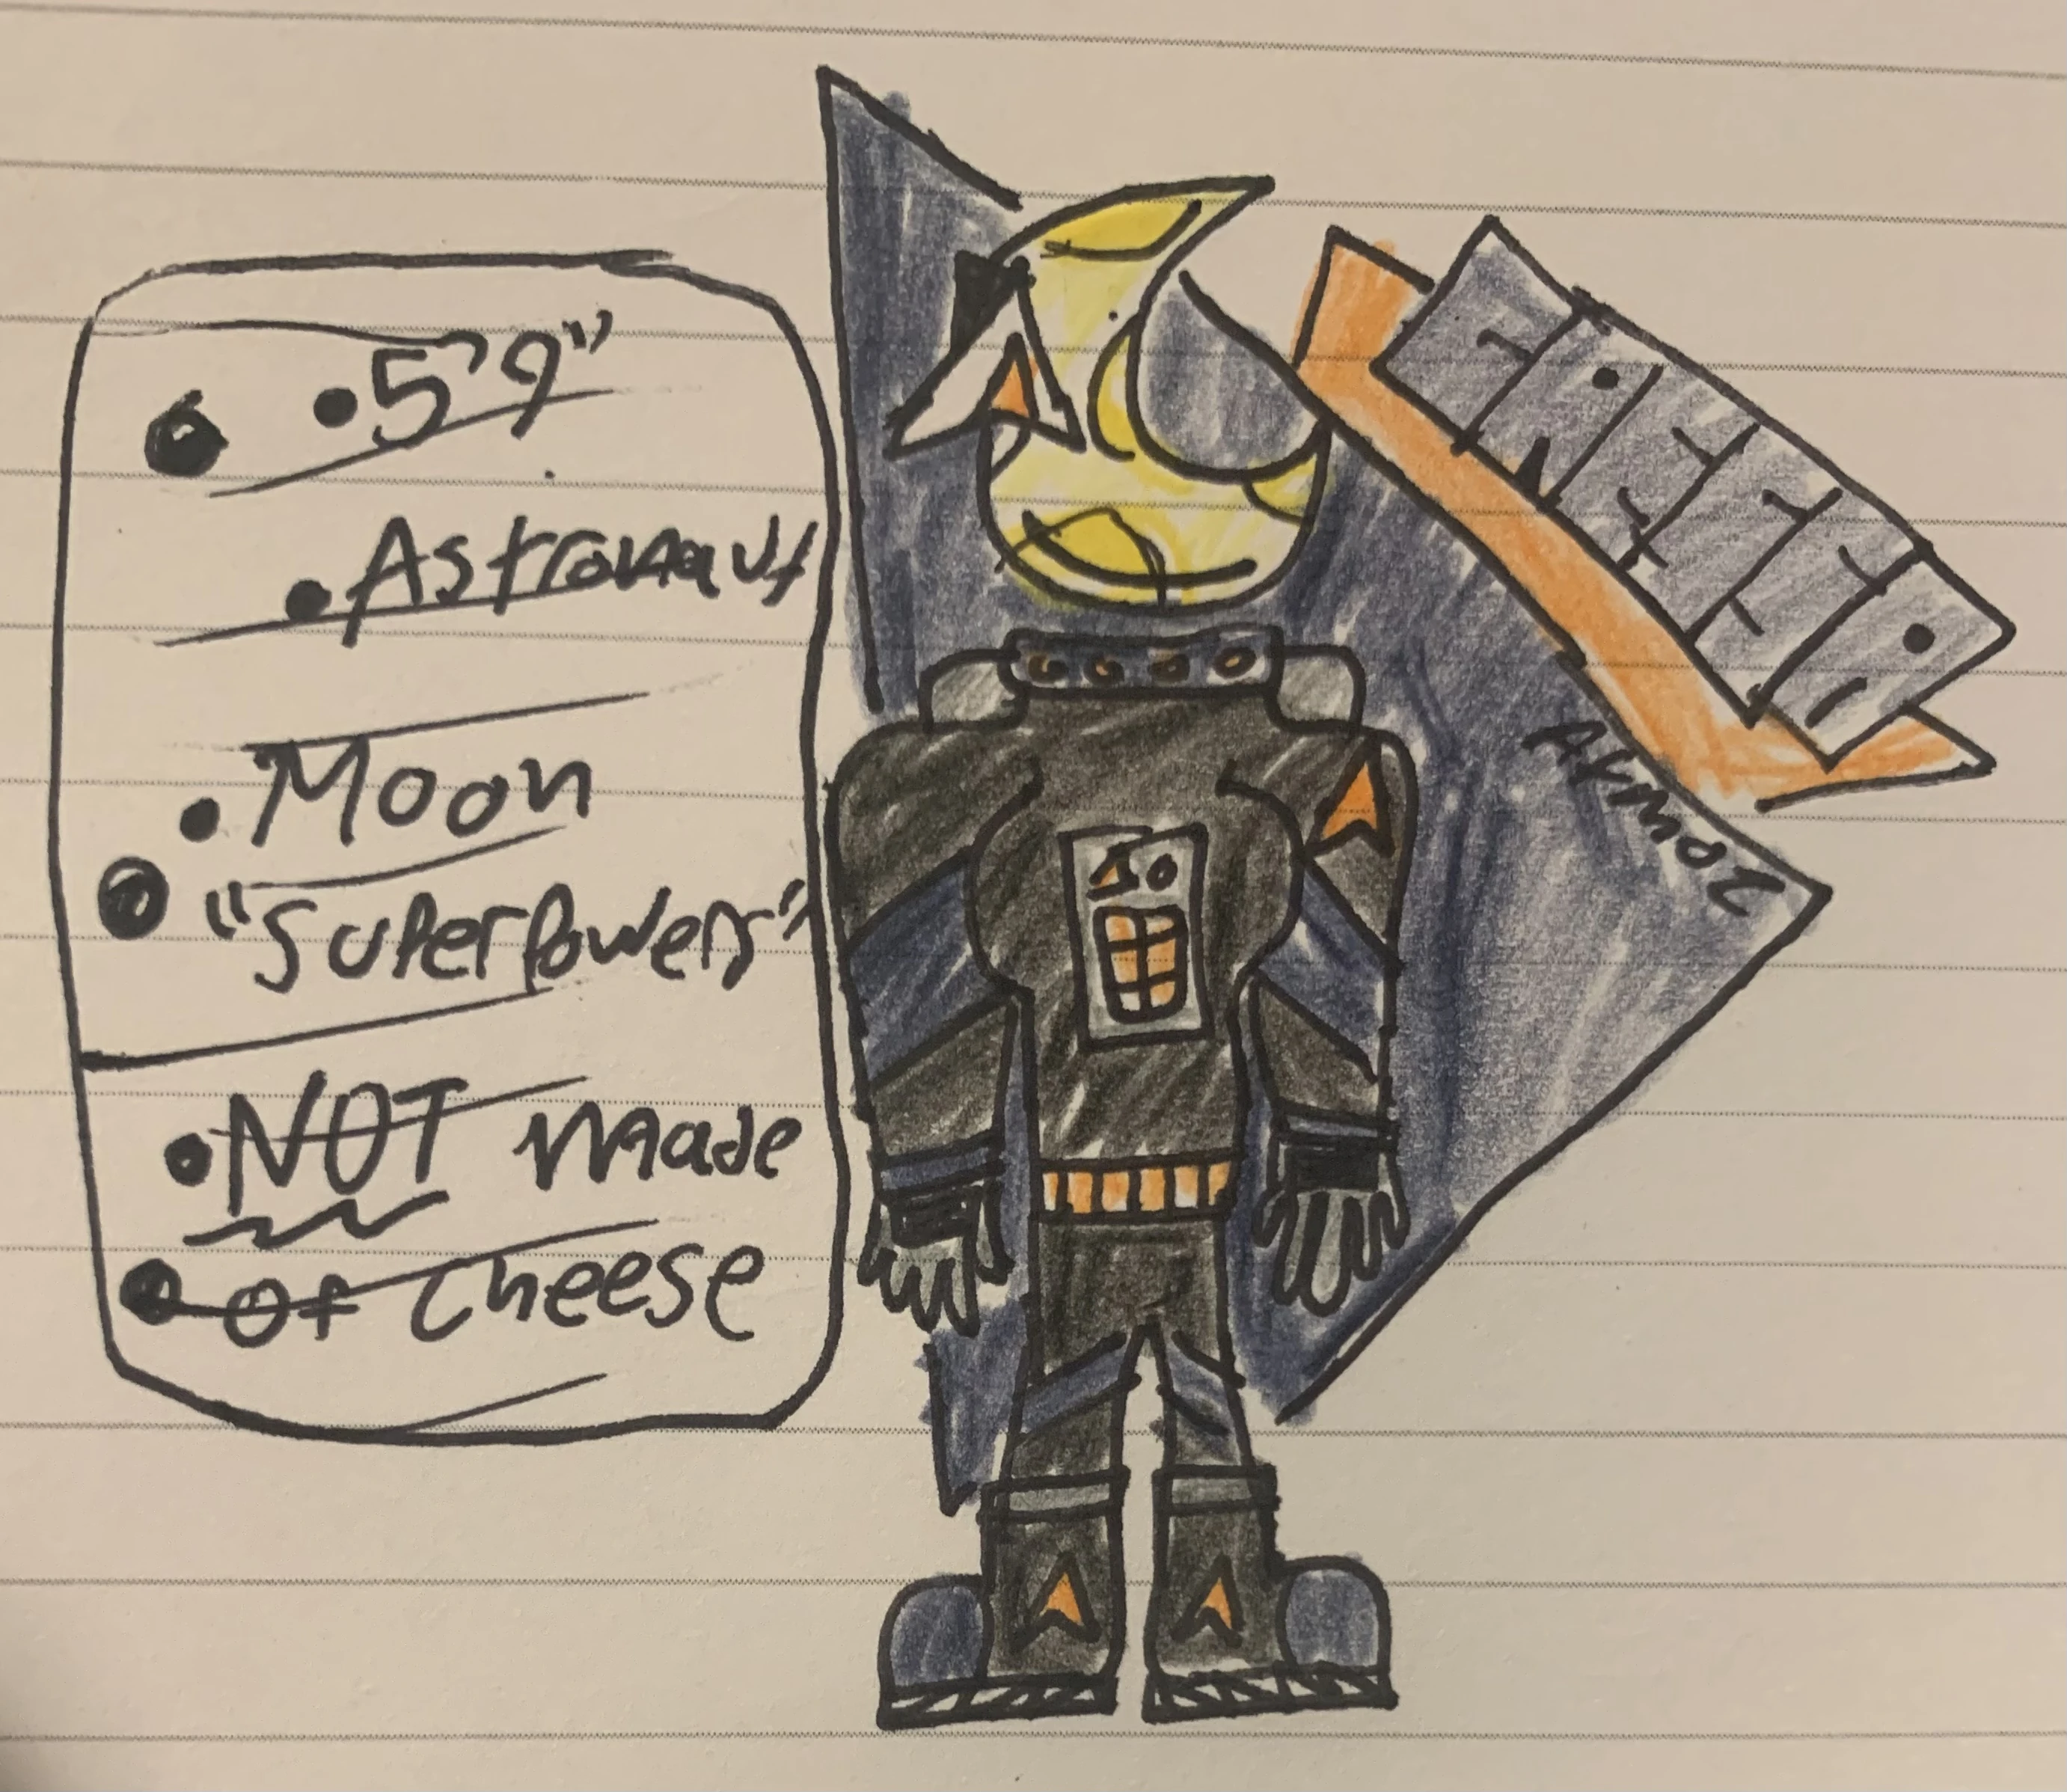 • 5'9"
• Astronaut
• Moon
"SuperPowers"
• NOT made
of cheese